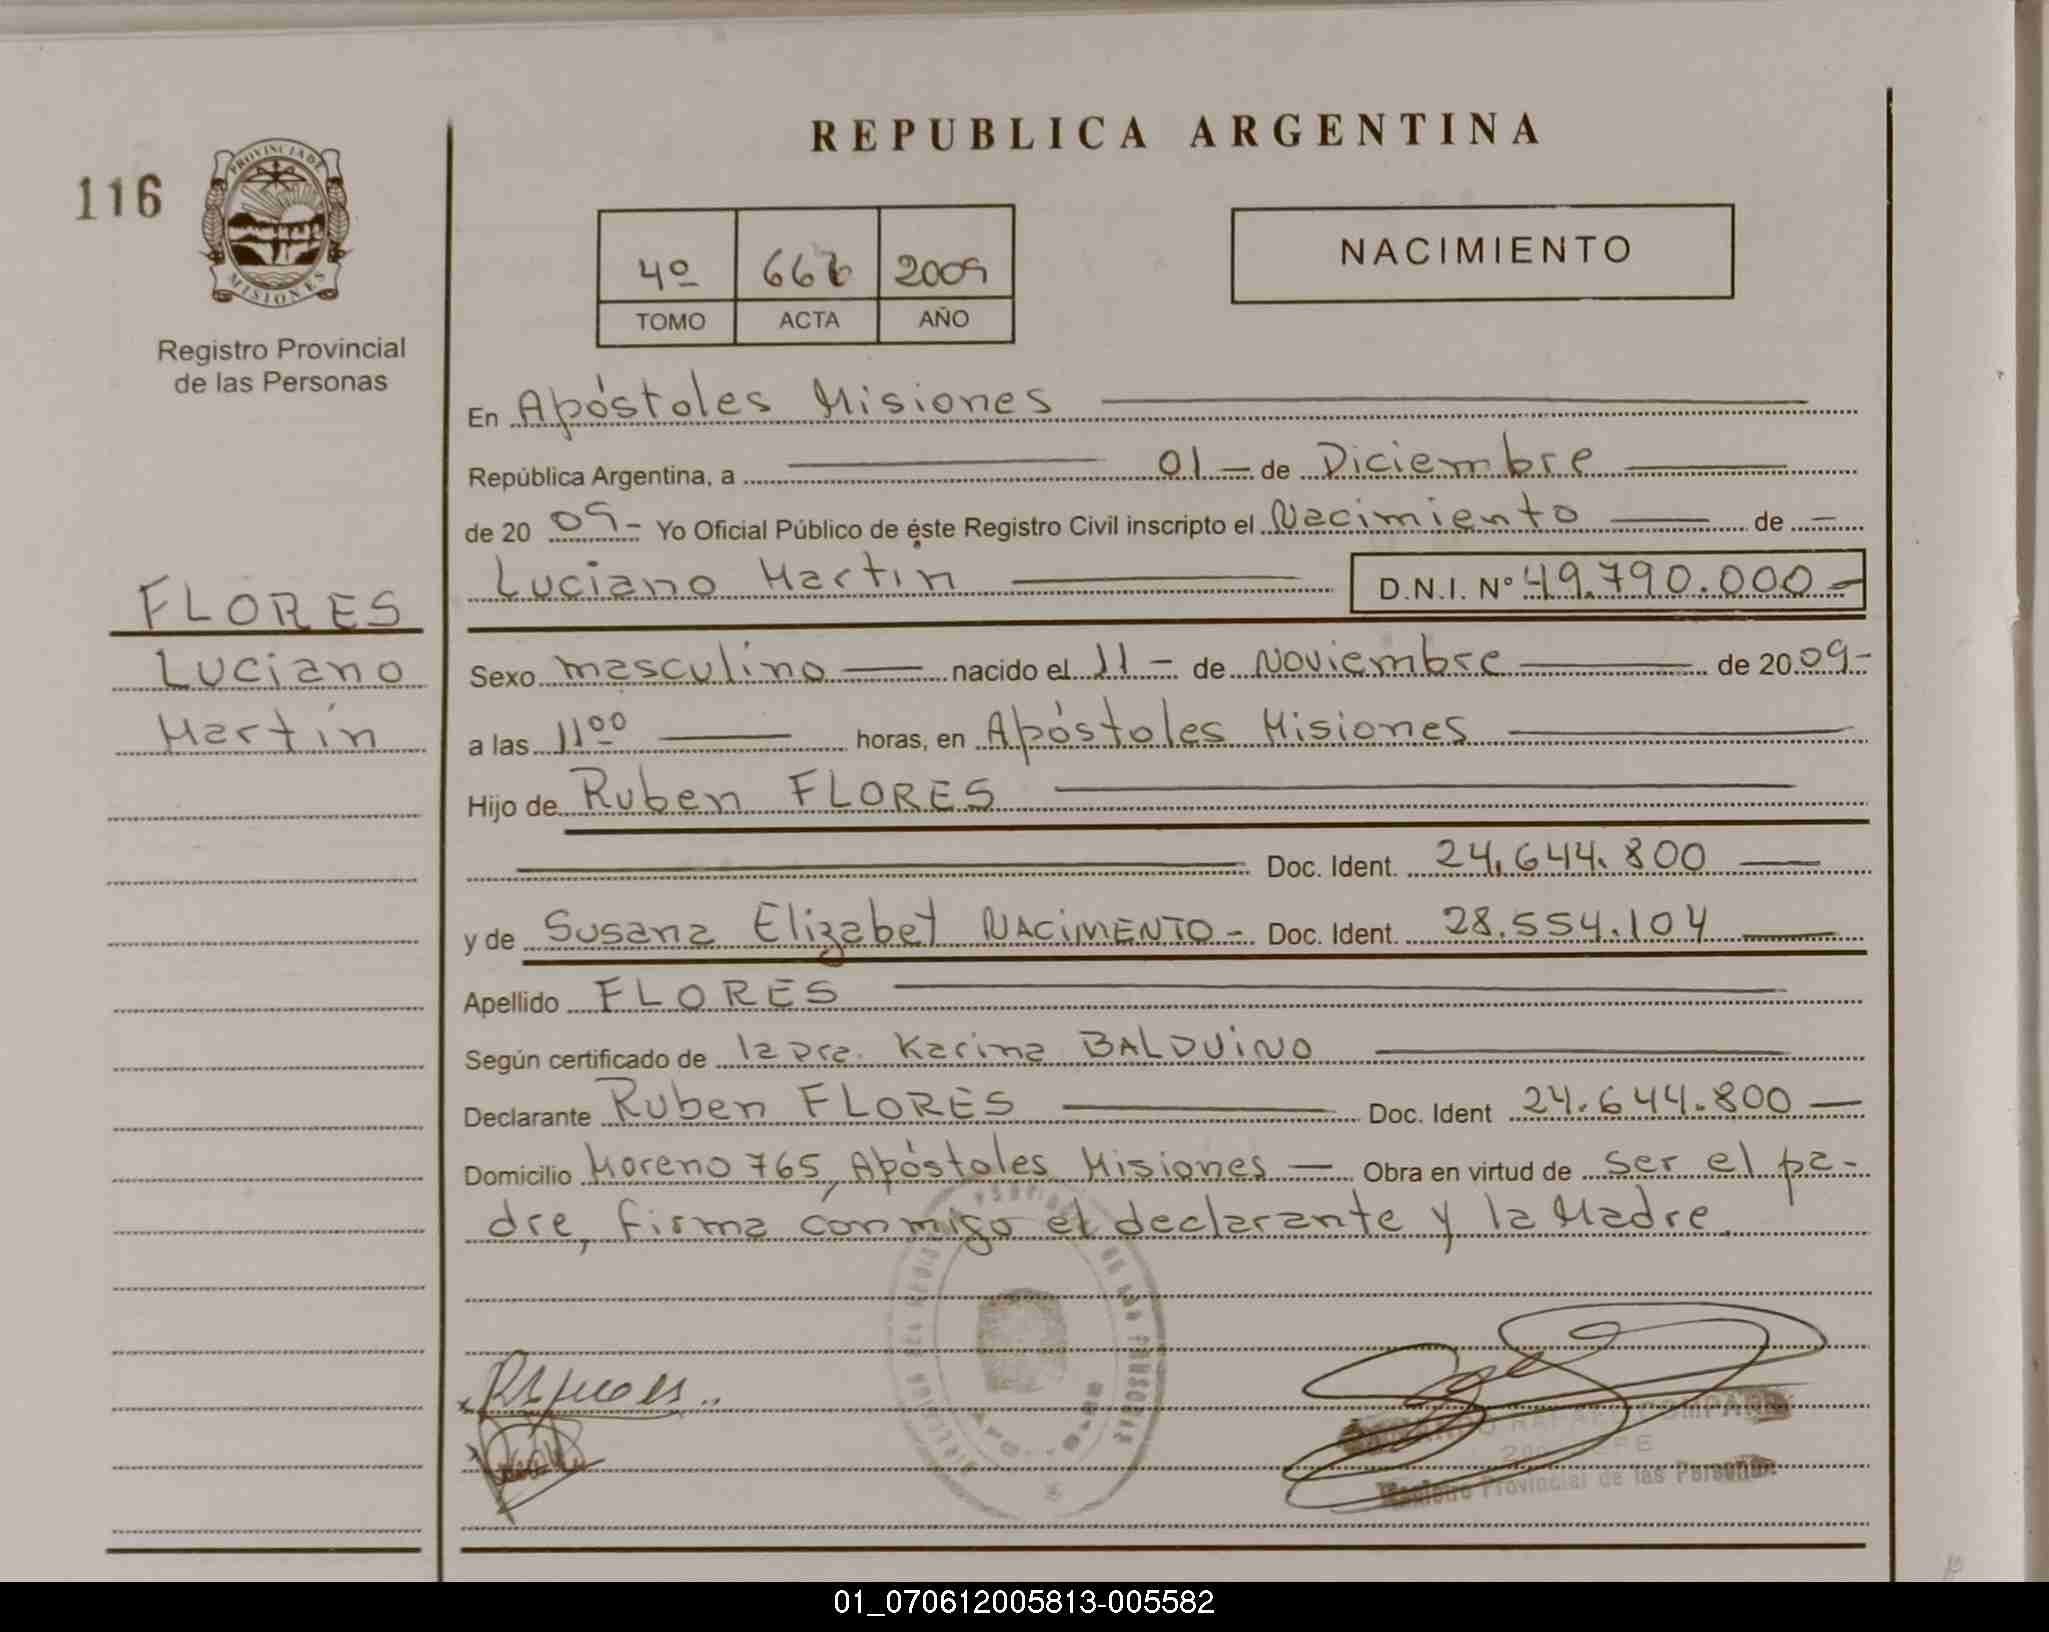 REPUBLICA ARGENTINA
116
PROVINCIA DE
MISIONES
Registro Provincial
de las Personas
4º 666 2009
TOMO ACTA AÑO
NACIMIENTO
En Apóstoles Misiones
República Argentina, a 01 - de Diciembre
de 20 09 - Yo Oficial Público de éste Registro Civil inscripto el Nacimiento de -
Luciano Martin D.N.I. Nº 49.790.000 -
FLORES
Luciano
Martín
Sexo masculino nacido el 11 - de Noviembre de 20 09-
a las 11 00 horas, en Apóstoles Misiones
Hijo de Ruben FLORES
Doc. Ident. 24.644.800
y de Susana Elizabet NACIMENTO - Doc. Ident. 28.554.104
Apellido FLORES
Según certificado de la Dra. Karina BALDUINO
Declarante Ruben FLORES Doc. Ident 24.644.800
Domicilio Moreno 765, Apóstoles Misiones Obra en virtud de ser el pa-
dre, firma conmigo el declarante y la Madre.
Provincial de las Personas
01_070612005813-005582